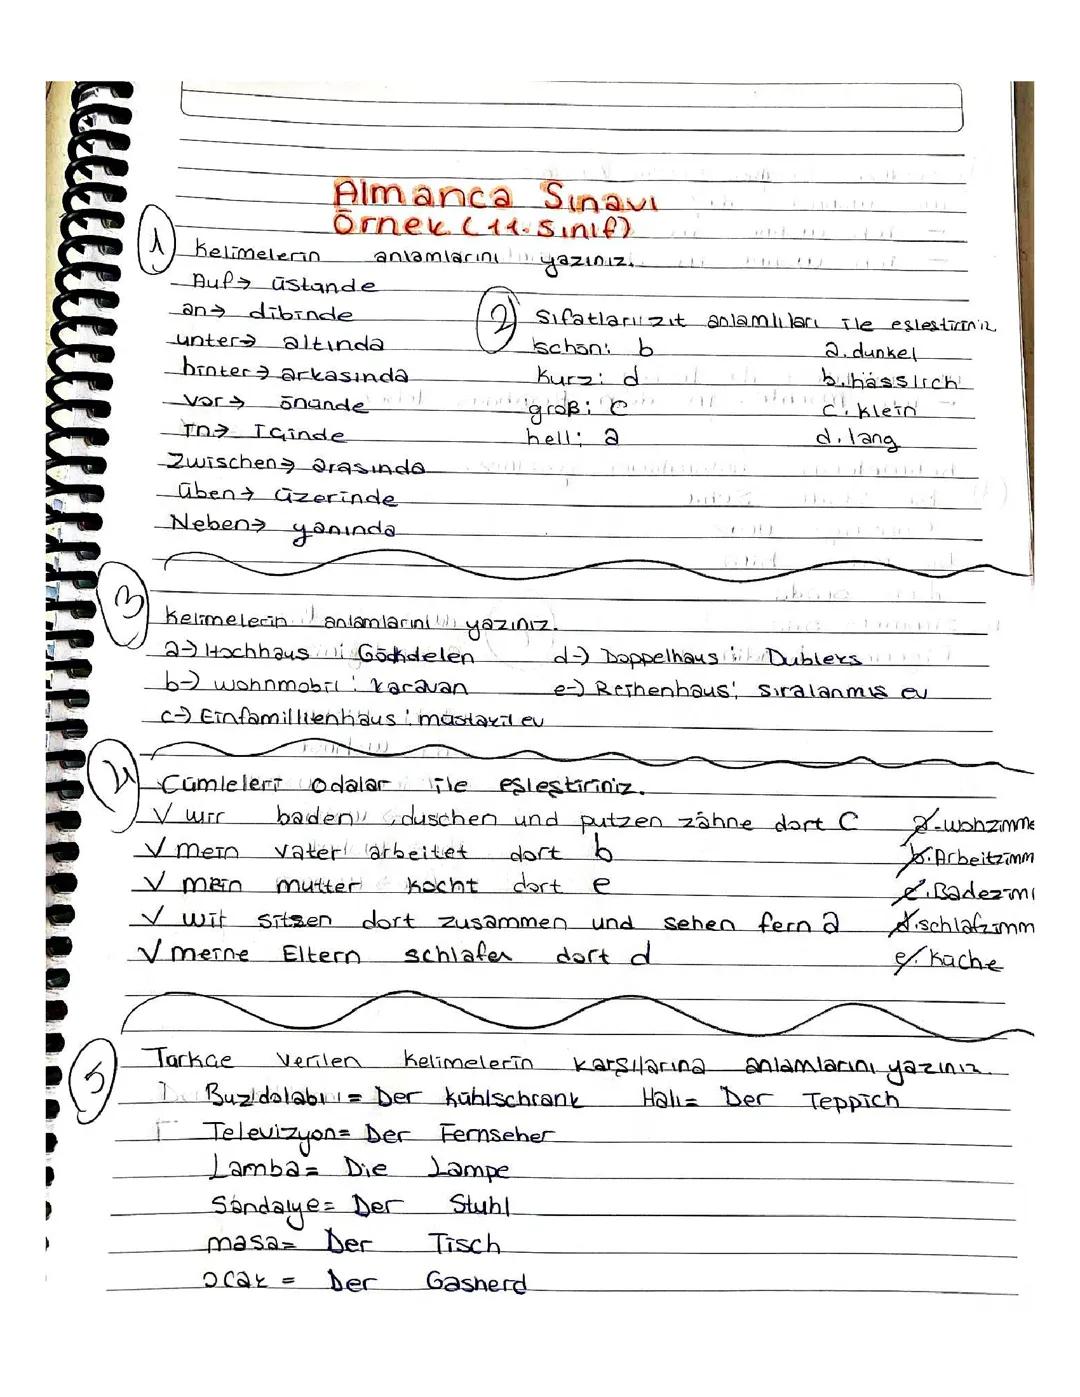 Almanca Sınavı
Örnek (11. Sınıf)
1 Kelimelerin anlamlarını yazınız.
Auf→ üstünde
an→ dibinde
unter→ altında
hinter→ arkasında
vor→ önünde
In→ İçinde
Zwischen→ arasında
üben→ üzerinde
Neben→ yanında
2 Sıfatları zıt anlamlıları ile eşleştiriniz
schön: b a. dunkel
kurz: d b. hässlich
groß: c c. klein
hell: a d. lang
3 Kelimelerin anlamlarını yazınız.
a-) Hochhaus : Gökdelen d-) Doppelhaus : Dubleks
b-) wohnmobil : karavan e-) Reihenhaus: sıralanmış ev
c-) Einfamillienhaus : müstakil ev
4 Cümleleri odalar ile eşleştiriniz.
√ wir baden, duschen und putzen zähne dort c a. wohzimme
√ mein vater arbeitet dort b b. Arbeitzimm
√ mein mutter kocht dort e c. Badezim
√ wir sitsen dort zusammen und sehen fern a d. schlafzimm
√ meine Eltern schlafen dort d e. Küche
5 Türkçe verilen kelimelerin karşılarına anlamlarını yazınız.
Buzdolabı = Der kühlschrank Halı = Der Teppich
Televizyon = Der Fernseher
Lamba = Die Lampe
Sandalye = Der Stuhl
masa = Der Tisch
ocak = Der Gasherd